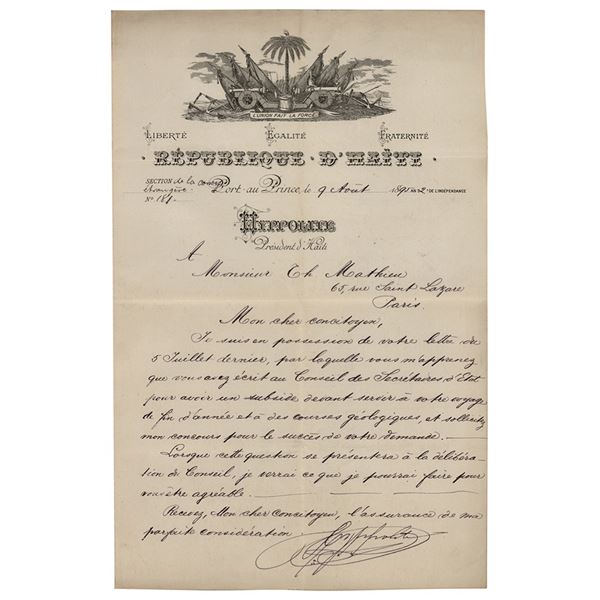 L'UNION FAIT LA FORCE
LIBERTÉ EGALITÉ FRATERNITÉ
RÉPUBLIQUE D'HAÏTI
SECTION de la corresp
étrangère. Port-au-Prince, le 9 Août 1891 AN 2°DE L'INDÉPENDANCE
N° 181.
HIPPOLITE
Président d'Haïti
A
Monsieur Th Mathieu
65, rue Saint Lazare
Paris
Mon cher concitoyen,
Je suis en possession de votre lettre du
5 Juillet dernier, par laquelle vous m'apprenez
que vous avez écrit au Conseil des Secrétaires d'Etat
pour avoir un subside devant servir à votre voyage
de fin d'année et à des courses géologiques, et sollicitez
mon concours pour le succès de votre demande.
Lorsque cette question se présentera à la délibéra-
tion du Conseil, je verrai ce que je pourrai faire pour
vous être agréable.
Recevez, Mon cher Concitoyen, l'assurance de ma
parfaite considération.
Hyppolite